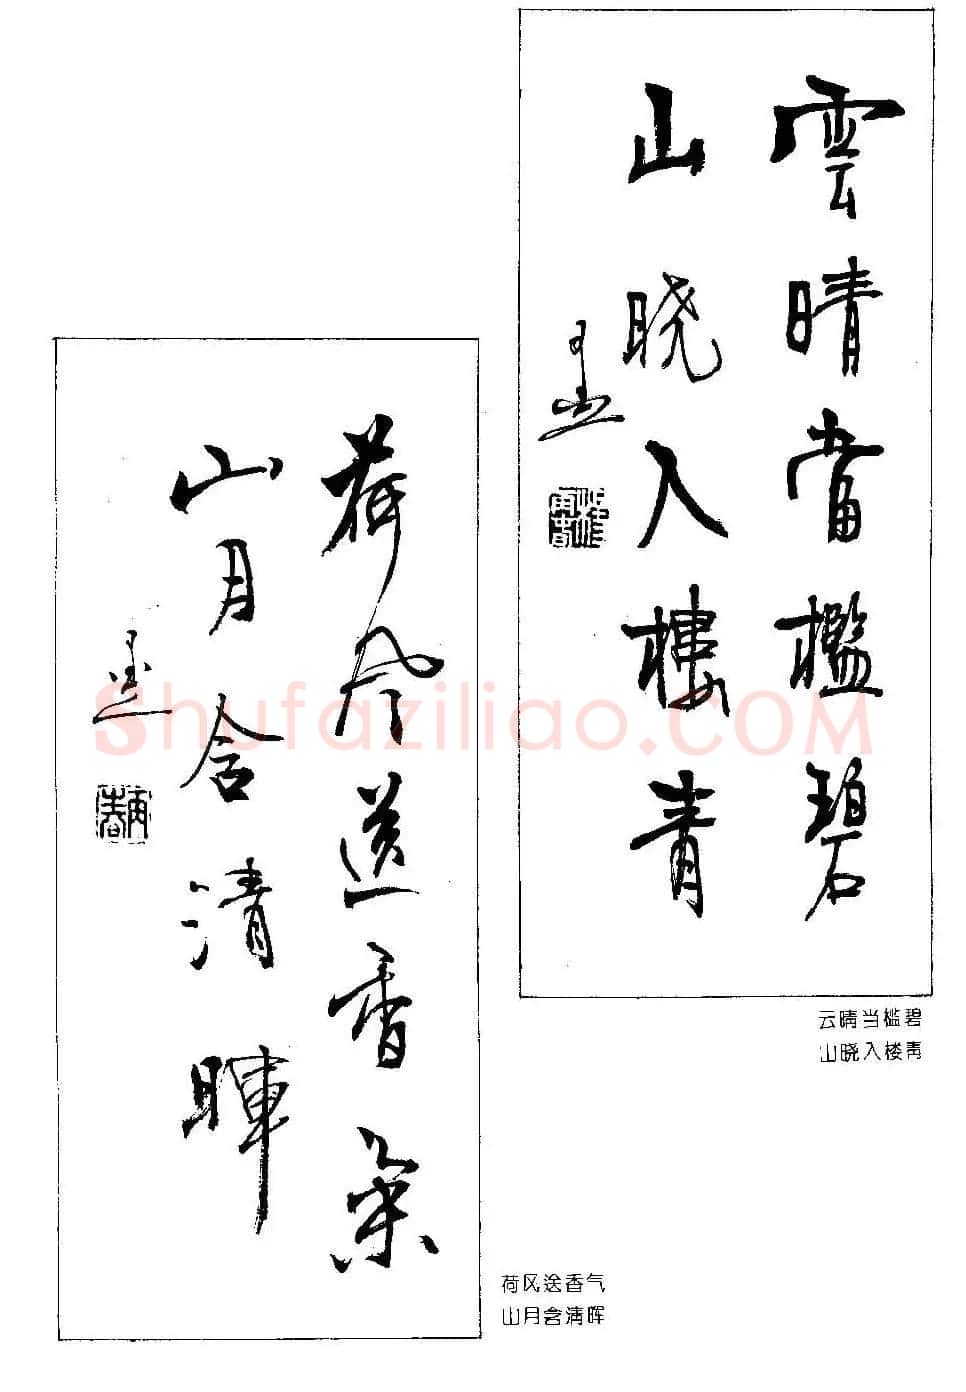 雲晴當檻碧
山晓入樓青
云晴当槛碧
山晓入楼青
荷风送香氣
山月含清暉
荷风送香气
山月含清晖
Shufaziliao.COM